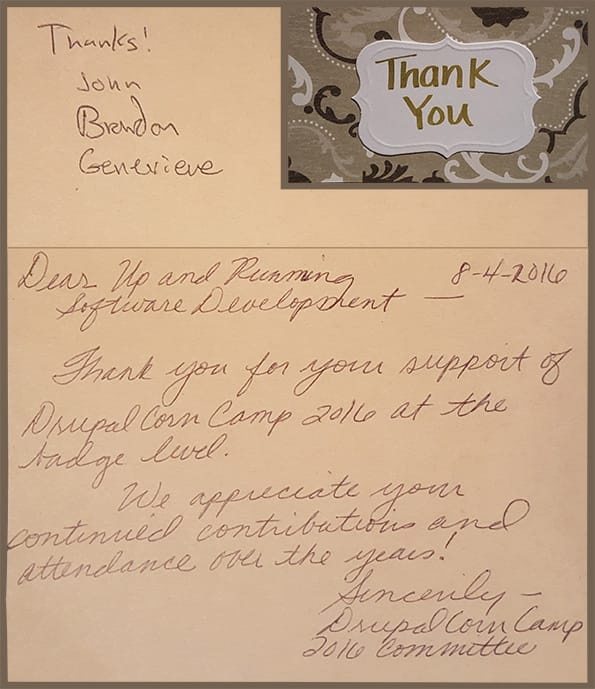 Thanks!
John
Brandon
Genevieve
Thank
You
Dear Up and Running 8-4-2016
Software Development —
Thank you for your support of
DrupalCorn Camp 2016 at the
badge level.
We appreciate your
continued contributions and
attendance over the years!
Sincerily –
DrupalCorn Camp
2016 Committee